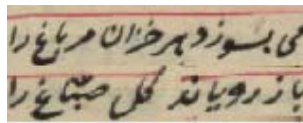 می بسوزد هر خزان مر باغ را
باز رویاند گل صبّاغ را